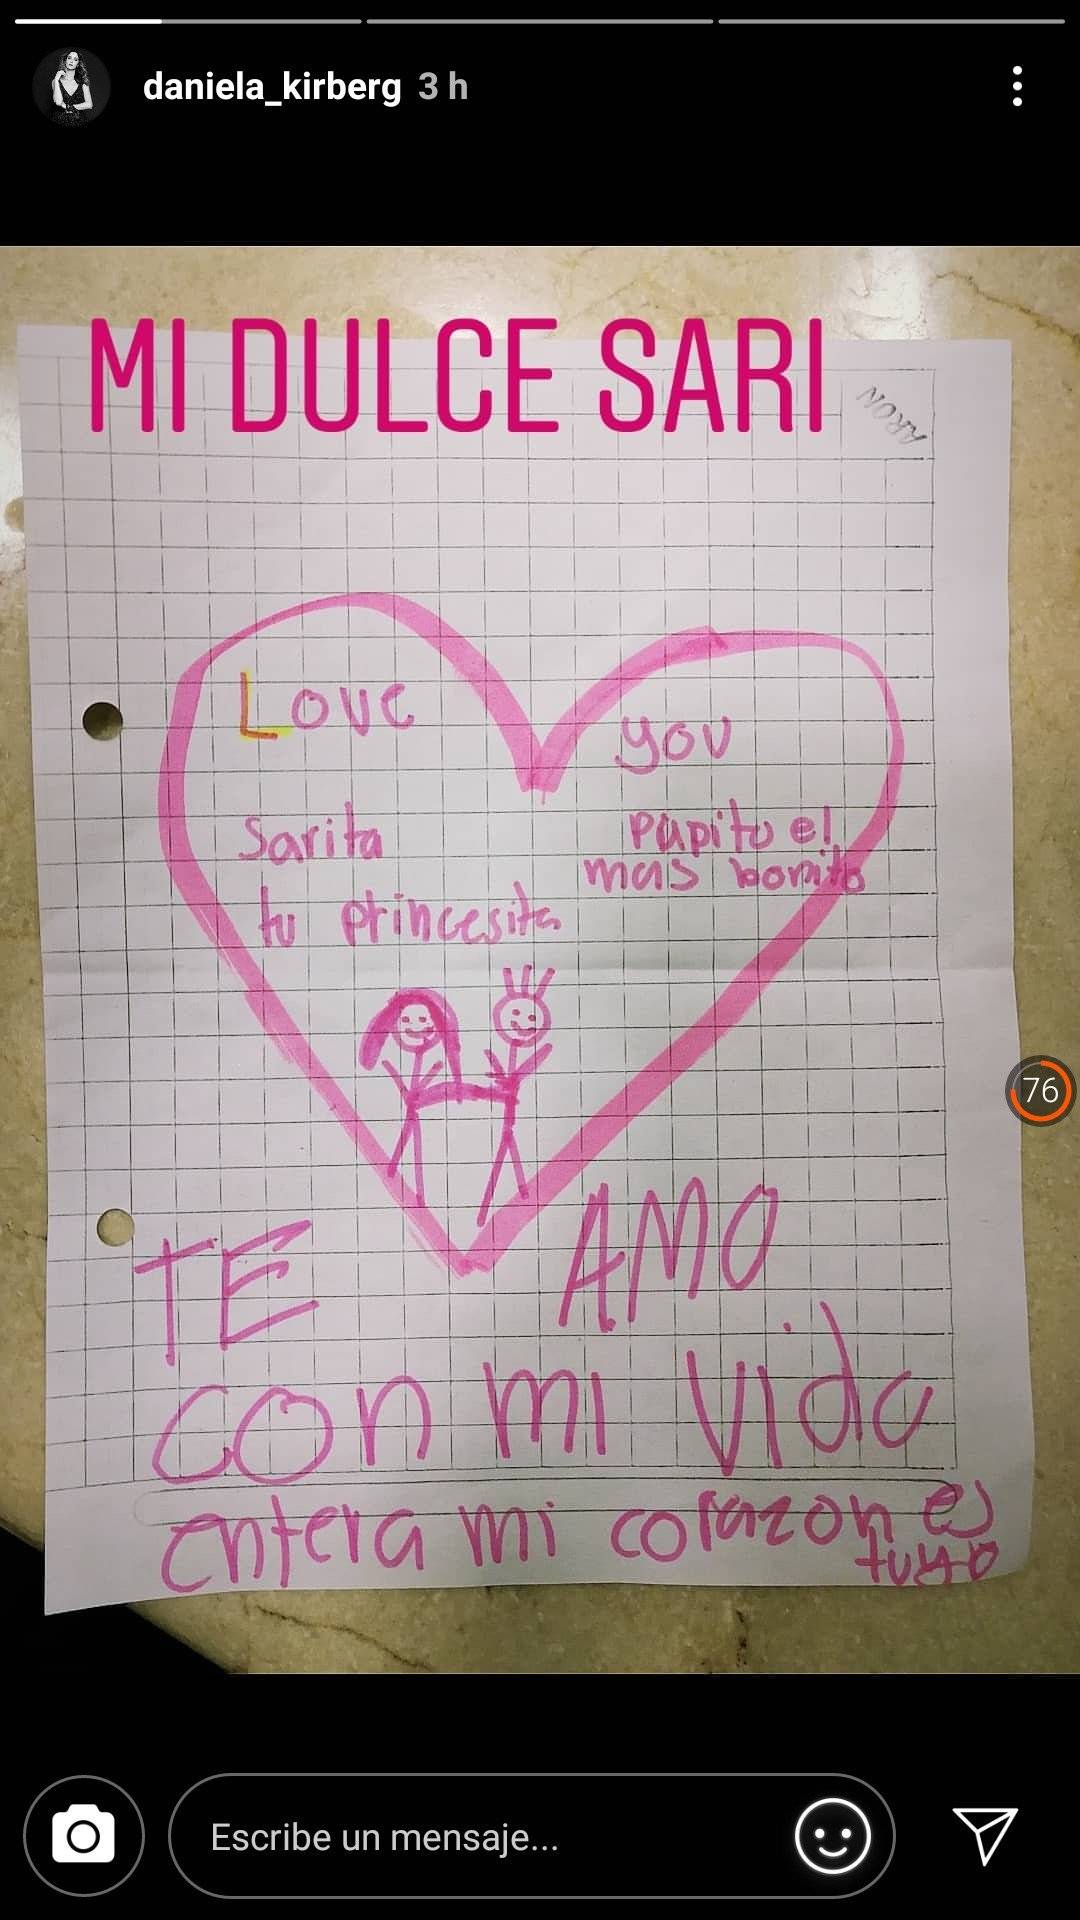 daniela_kirberg 3 h
MI DULCE SARI
ARON
Love you
Sarita papito el
mas bonito
tu princesita
TE AMO
con mi vida
entera mi corazon es
tuyo
76
Escribe un mensaje...